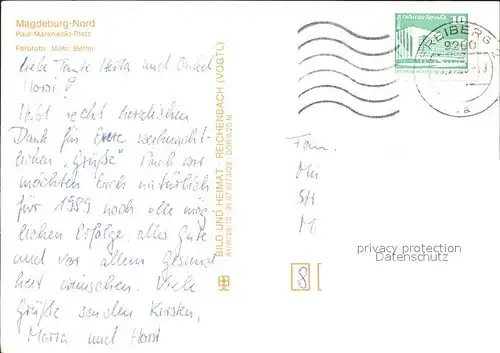 Magdeburg-Nord
Paul-Markowski-Platz
Farbfoto: Mohr, Berlin
liebe Tante Herta und Onkel
Horst!
Habt recht herzlichen
Dank für Eure weihnacht-
lichen „Grüße" Auch wir
möchten Euch natürlich
für 1989 noch alle mög-
lichen Erfolge, alles Gute
und vor allem Gesund
heit wünschen. Viele
Grüße senden Kirsten,
Maria und Horst
BILD UND HEIMAT · REICHENBACH (VOGTL)
DDR 0,20 M
10
FREIBERG
9200
a
Fam.
privacy protection
Datenschutz
8